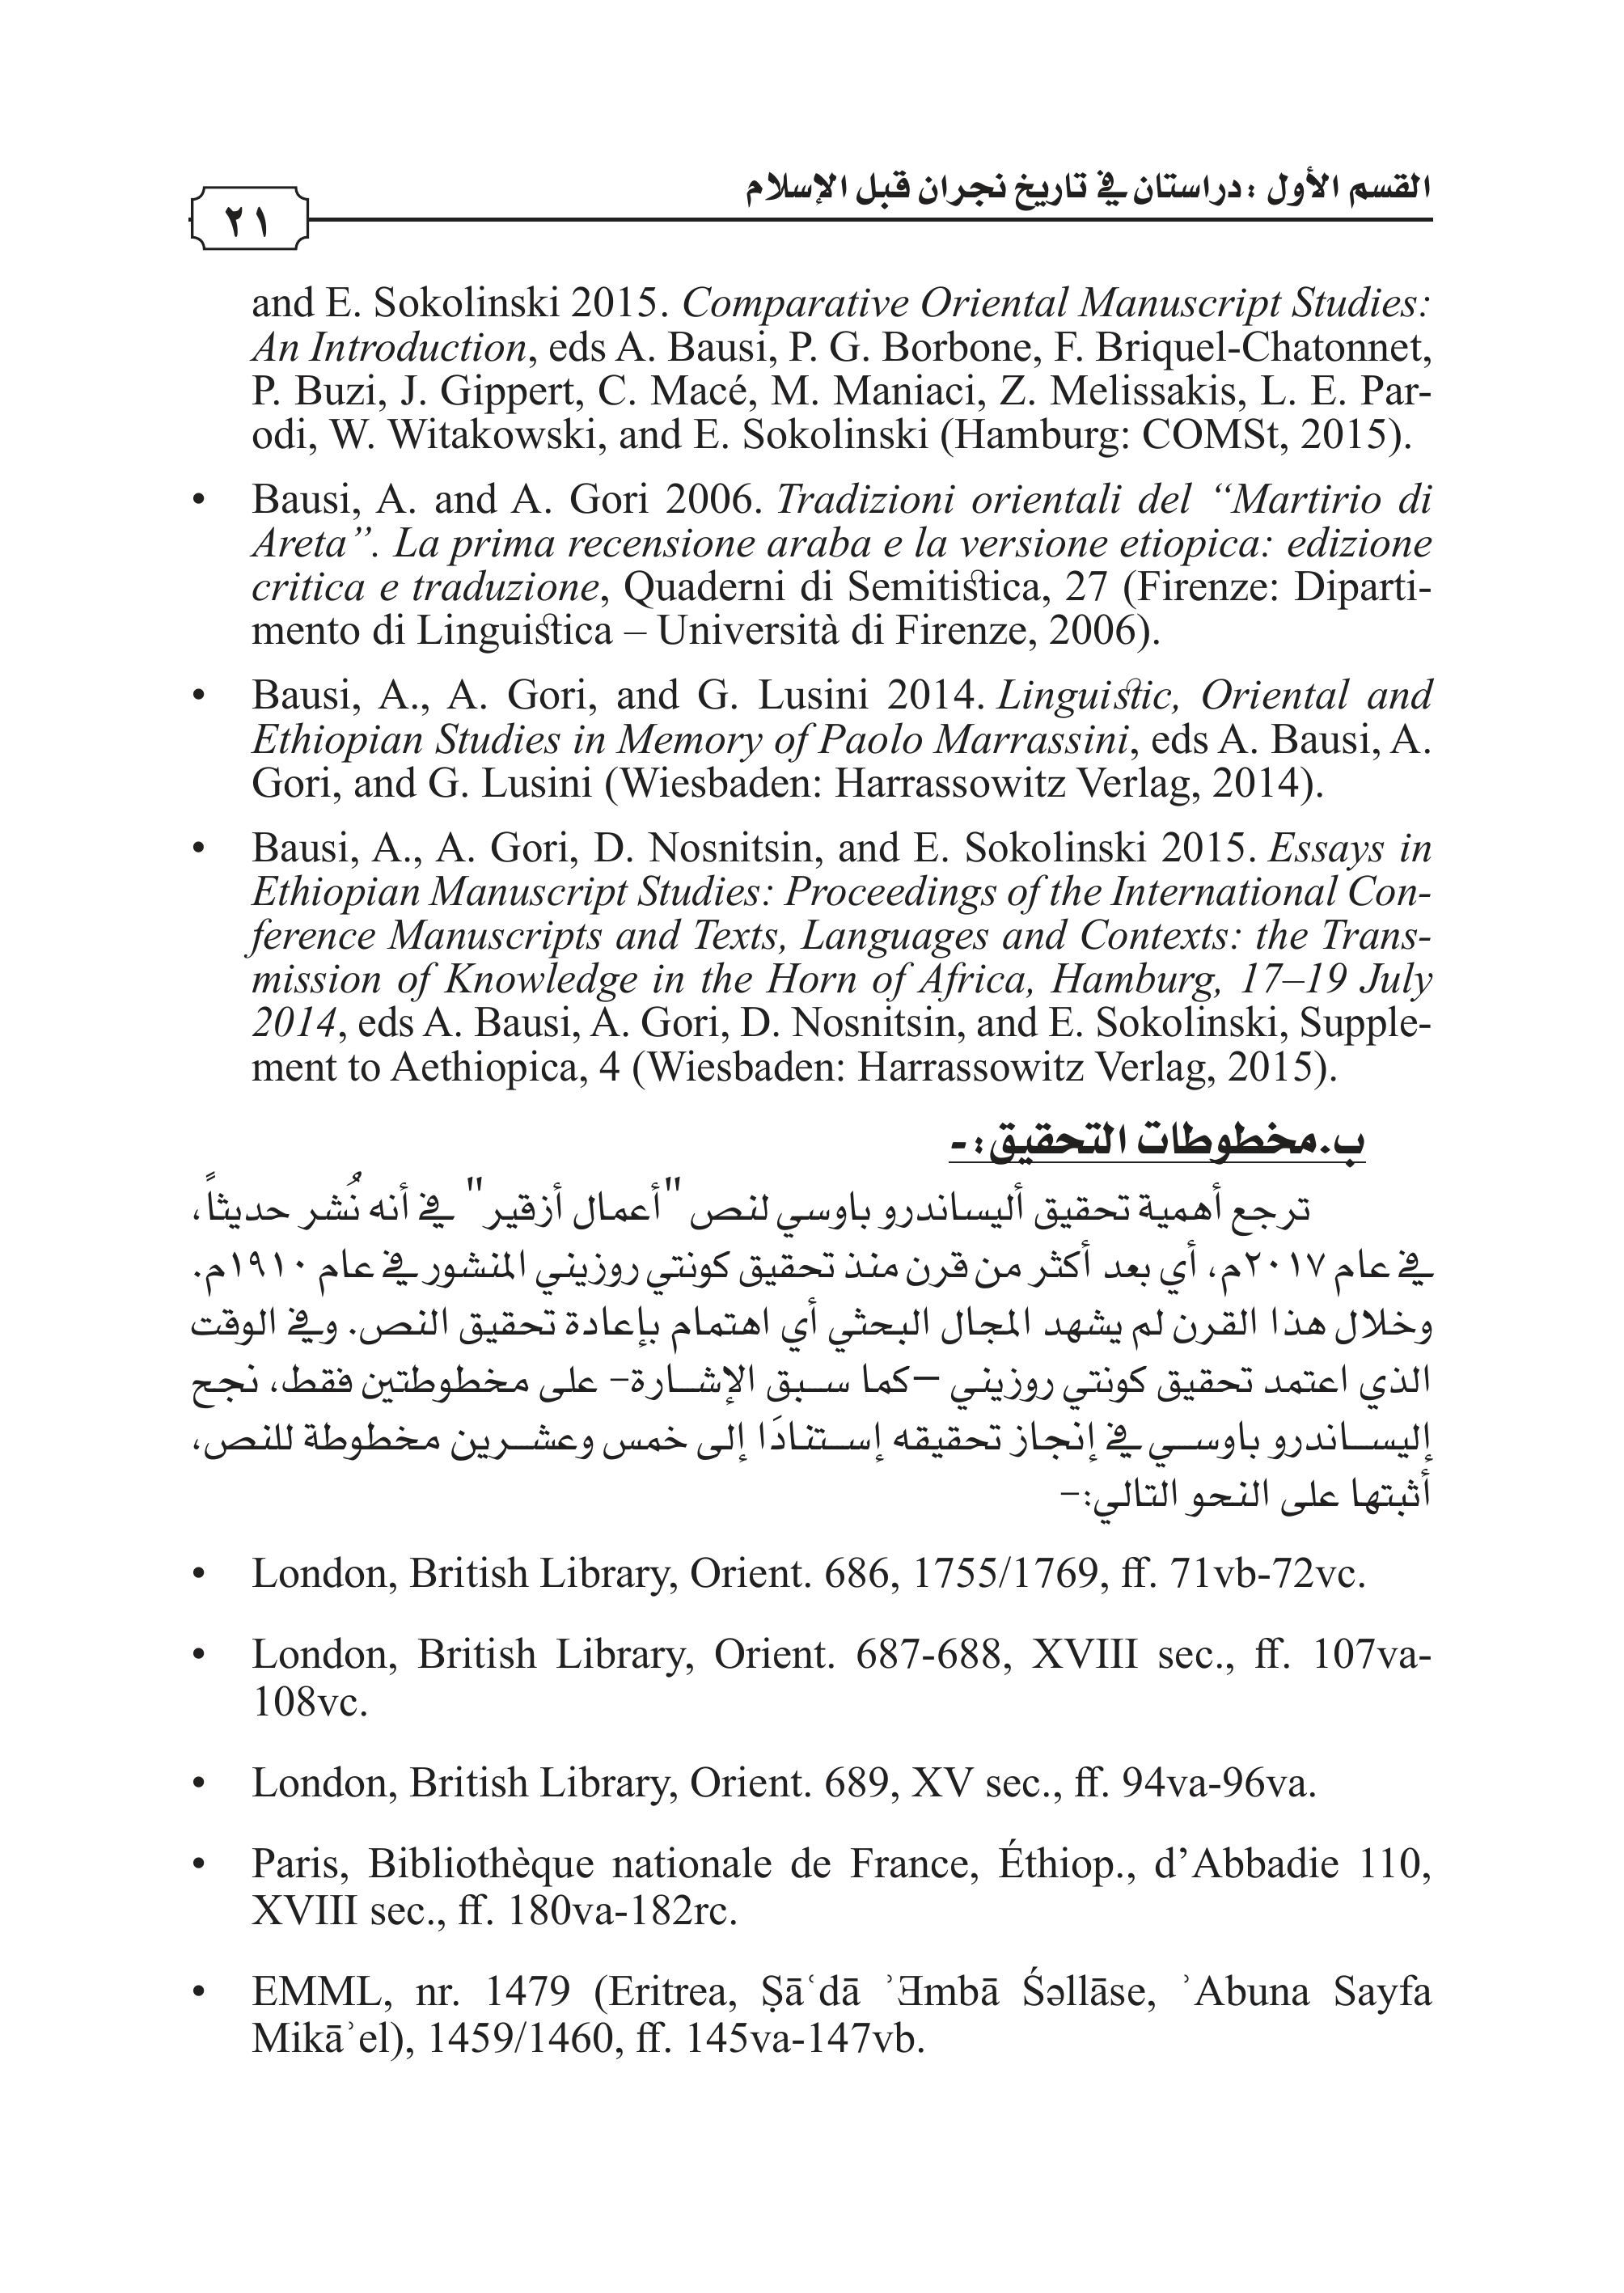 القسم الأول : دراستان في تاريخ نجران قبل الإسلام
٢١
and E. Sokolinski 2015. Comparative Oriental Manuscript Studies:
An Introduction, eds A. Bausi, P. G. Borbone, F. Briquel-Chatonnet,
P. Buzi, J. Gippert, C. Macé, M. Maniaci, Z. Melissakis, L. E. Par-
odi, W. Witakowski, and E. Sokolinski (Hamburg: COMSt, 2015).
• Bausi, A. and A. Gori 2006. Tradizioni orientali del “Martirio di
Areta”. La prima recensione araba e la versione etiopica: edizione
critica e traduzione, Quaderni di Semitistica, 27 (Firenze: Diparti-
mento di Linguistica – Università di Firenze, 2006).
• Bausi, A., A. Gori, and G. Lusini 2014. Linguistic, Oriental and
Ethiopian Studies in Memory of Paolo Marrassini, eds A. Bausi, A.
Gori, and G. Lusini (Wiesbaden: Harrassowitz Verlag, 2014).
• Bausi, A., A. Gori, D. Nosnitsin, and E. Sokolinski 2015. Essays in
Ethiopian Manuscript Studies: Proceedings of the International Con-
ference Manuscripts and Texts, Languages and Contexts: the Trans-
mission of Knowledge in the Horn of Africa, Hamburg, 17–19 July
2014, eds A. Bausi, A. Gori, D. Nosnitsin, and E. Sokolinski, Supple-
ment to Aethiopica, 4 (Wiesbaden: Harrassowitz Verlag, 2015).
ب.مخطوطات التحقيق:-
ترجع أهمية تحقيق أليساندرو باوسي لنص "أعمال أزقير" في أنه نُشر حديثاً،
في عام ٢٠١٧م، أي بعد أكثر من قرن منذ تحقيق كونتي روزيني المنشور في عام ١٩١٠م.
وخلال هذا القرن لم يشهد المجال البحثي أي اهتمام بإعادة تحقيق النص. وفي الوقت
الذي اعتمد تحقيق كونتي روزيني –كما سبق الإشارة- على مخطوطتين فقط، نجح
إليساندرو باوسي في إنجاز تحقيقه إستنادَا إلى خمس وعشرين مخطوطة للنص،
أثبتها على النحو التالي:-
• London, British Library, Orient. 686, 1755/1769, ff. 71vb-72vc.
• London, British Library, Orient. 687-688, XVIII sec., ff. 107va-
108vc.
• London, British Library, Orient. 689, XV sec., ff. 94va-96va.
• Paris, Bibliothèque nationale de France, Éthiop., d’Abbadie 110,
XVIII sec., ff. 180va-182rc.
• EMML, nr. 1479 (Eritrea, Ṣāʿdā ʾƎmbā Śəllāse, ʾAbuna Sayfa
Mikāʾel), 1459/1460, ff. 145va-147vb.